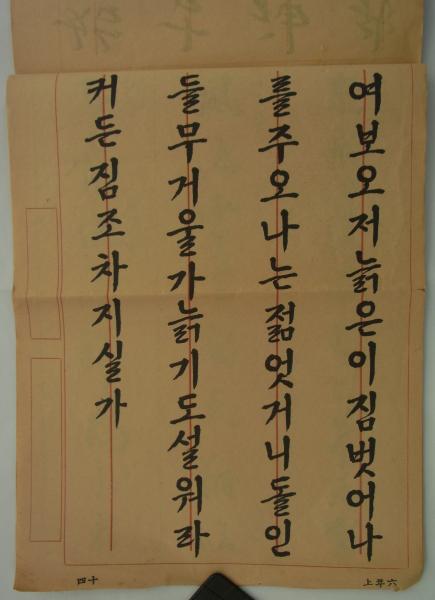 여보오저늙은이짐벗어나
를주오나는젊엇거니돌인
들무거울가늙기도설워라
커든짐조차지실가
六年上
十四